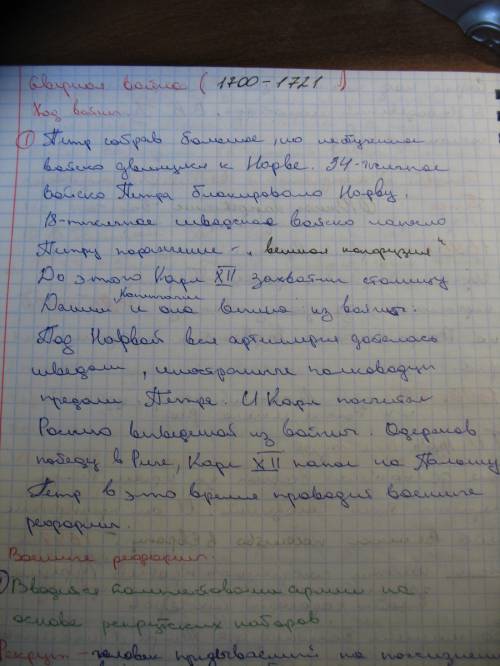 Северная война (1700-1721)
Ход войны.
① Петр собрав большое, но необученное
войско двинулся к Нарве. 34-тысячное
войско Петра блокировало Нарву.
18-тысячное шведское войско нанесло
Петру поражение - „великая конфузия"
До этого Карл XII захватил столицу
Дании Копенгаген и она вышла из войны.
Под Нарвой вся артиллерия досталась
шведам, иностранные полководцы
предали Петра. И Карл посчитал
Россию выведенной из войны. Одержав
победу в Риге, Карл XII напал на Польшу
Петр в это время проводит военные
реформы.
Военные реформы.
Вводится комплектование армии на
основе рекрутских наборов.
Рекрут - человек призываемый на пожизненную